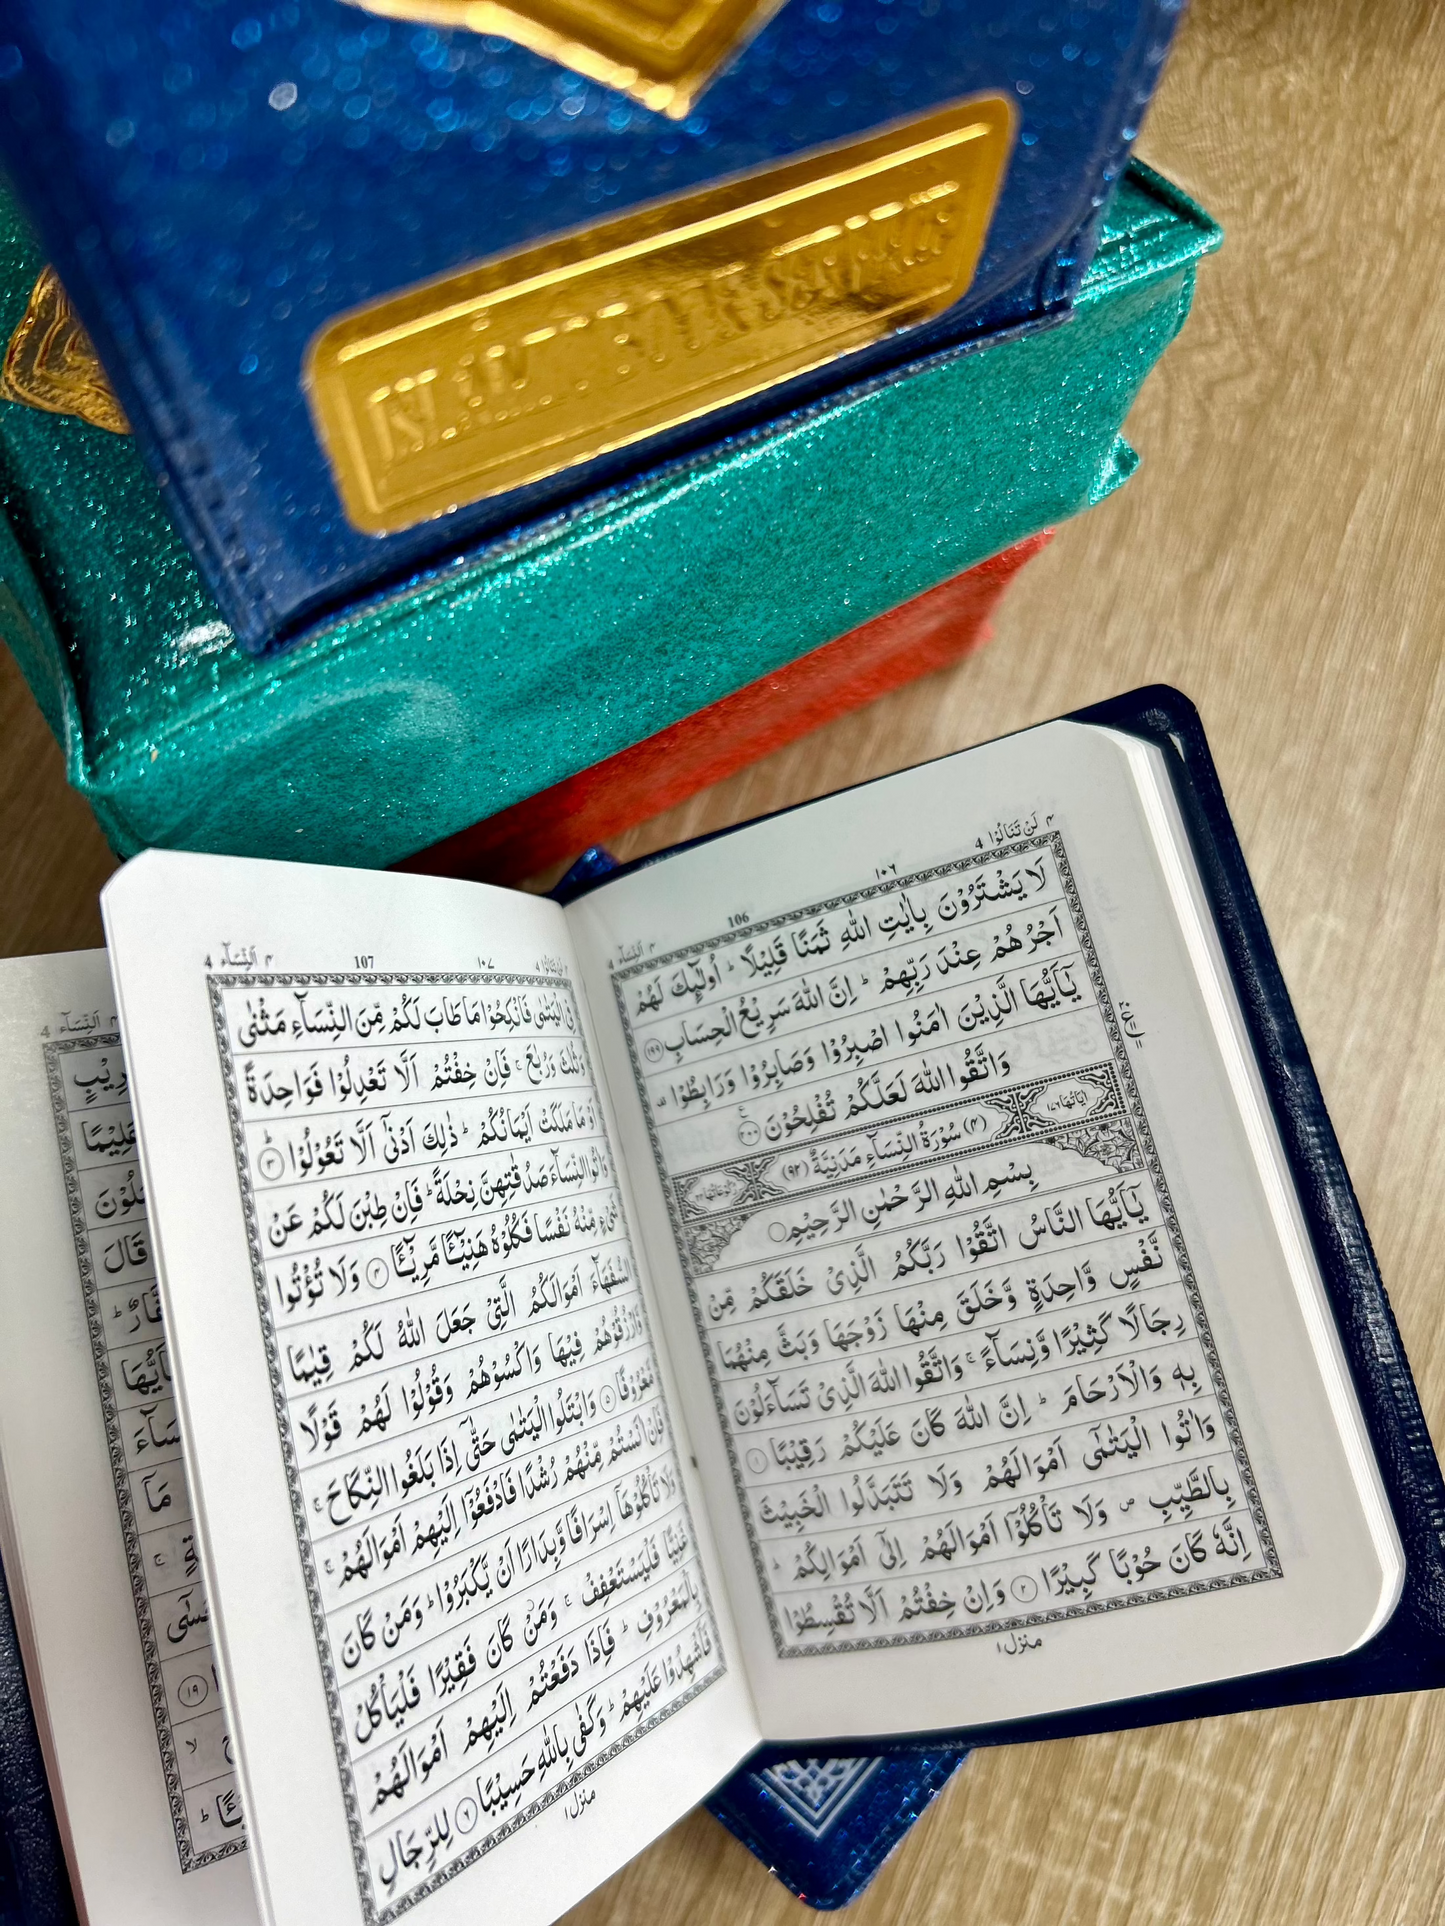 ٤ لَنْ تَنَالُوْا 4
١٠٦
106
٤ اَلنِّسَآء 4
لَا يَشْتَرُوْنَ بِاٰيٰتِ اللّٰهِ ثَمَنًا قَلِيْلًا ؕ اُولٰٓئِكَ لَهُمْ
اَجْرُهُمْ عِنْدَ رَبِّهِمْ ؕ اِنَّ اللّٰهَ سَرِيْعُ الْحِسَابِ ١٩٩
يٰۤاَيُّهَا الَّذِيْنَ اٰمَنُوا اصْبِرُوْا وَصَابِرُوْا وَرَابِطُوْا
وَاتَّقُوا اللّٰهَ لَعَلَّكُمْ تُفْلِحُوْنَ ٢٠٠
اٰيَاتُهَا ١٧٦ (٤) سُوْرَةُ النِّسَآءِ مَدَنِيَّةٌ (٩٢)
بِسْمِ اللّٰهِ الرَّحْمٰنِ الرَّحِيْمِ
يٰۤاَيُّهَا النَّاسُ اتَّقُوْا رَبَّكُمُ الَّذِيْ خَلَقَكُمْ مِّنْ
نَّفْسٍ وَّاحِدَةٍ وَّخَلَقَ مِنْهَا زَوْجَهَا وَبَثَّ مِنْهُمَا
رِجَالًا كَثِيْرًا وَّنِسَآءً ۚ وَاتَّقُوا اللّٰهَ الَّذِيْ تَسَآءَلُوْنَ
بِهٖ وَالْاَرْحَامَ ؕ اِنَّ اللّٰهَ كَانَ عَلَيْكُمْ رَقِيْبًا ١
وَاٰتُوا الْيَتٰمٰۤى اَمْوَالَهُمْ وَلَا تَتَبَدَّلُوا الْخَبِيْثَ
بِالطَّيِّبِ ۪ وَلَا تَاْكُلُوْۤا اَمْوَالَهُمْ اِلٰۤى اَمْوَالِكُمْ ؕ
اِنَّهٗ كَانَ حُوْبًا كَبِيْرًا ٢ وَاِنْ خِفْتُمْ اَلَّا تُقْسِطُوْا
منزل ١
لن تنالوا 4
١٠٧
107
٤ اَلنِّسَآء 4
فِي الْيَتٰمٰى فَانْكِحُوْا مَا طَابَ لَكُمْ مِّنَ النِّسَآءِ مَثْنٰى
وَثُلٰثَ وَرُبٰعَ ۚ فَاِنْ خِفْتُمْ اَلَّا تَعْدِلُوْا فَوَاحِدَةً
اَوْ مَا مَلَكَتْ اَيْمَانُكُمْ ؕ ذٰلِكَ اَدْنٰۤى اَلَّا تَعُوْلُوْا ؕ ٣
وَاٰتُوا النِّسَآءَ صَدُقٰتِهِنَّ نِحْلَةً ؕ فَاِنْ طِبْنَ لَكُمْ عَنْ
شَيْءٍ مِّنْهُ نَفْسًا فَكُلُوْهُ هَنِيْٓـًٔا مَّرِيْٓـًٔا ٤ وَلَا تُؤْتُوا
السُّفَهَآءَ اَمْوَالَكُمُ الَّتِيْ جَعَلَ اللّٰهُ لَكُمْ قِيٰمًا
وَّارْزُقُوْهُمْ فِيْهَا وَاكْسُوْهُمْ وَقُوْلُوْا لَهُمْ قَوْلًا
مَّعْرُوْفًا ٥ وَابْتَلُوا الْيَتٰمٰى حَتّٰۤى اِذَا بَلَغُوا النِّكَاحَ ۚ
فَاِنْ اٰنَسْتُمْ مِّنْهُمْ رُشْدًا فَادْفَعُوْۤا اِلَيْهِمْ اَمْوَالَهُمْ ۚ
وَلَا تَاْكُلُوْهَاۤ اِسْرَافًا وَّبِدَارًا اَنْ يَّكْبَرُوْا ؕ وَمَنْ كَانَ
غَنِيًّا فَلْيَسْتَعْفِفْ ۚ وَمَنْ كَانَ فَقِيْرًا فَلْيَاْكُلْ
بِالْمَعْرُوْفِ ؕ فَاِذَا دَفَعْتُمْ اِلَيْهِمْ اَمْوَالَهُمْ
فَاَشْهِدُوْا عَلَيْهِمْ ؕ وَكَفٰى بِاللّٰهِ حَسِيْبًا ٦ لِلرِّجَالِ
منزل ١
٤ اَلنِّسَآء 4
قَالَ
مَاۤ
١٩